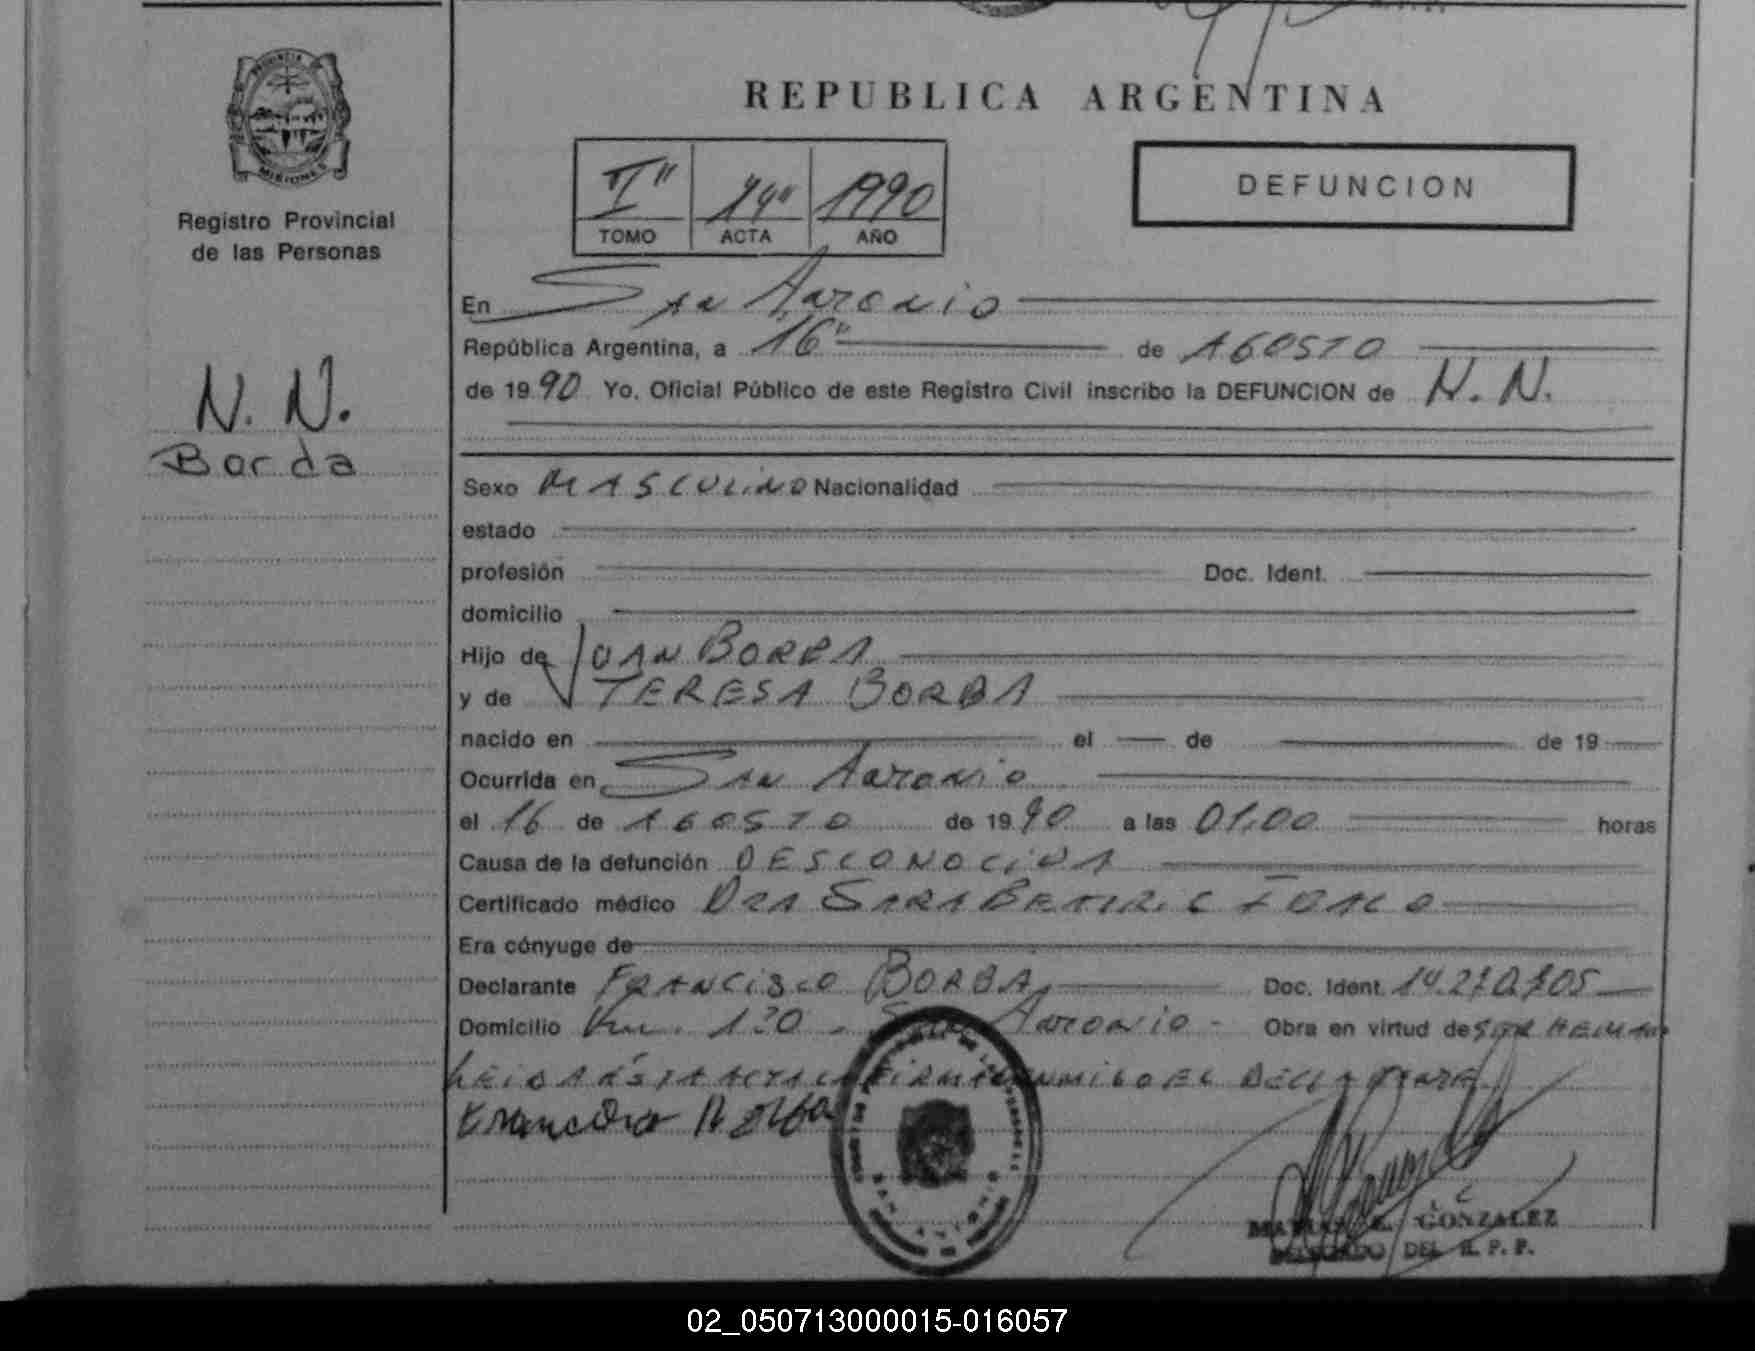 REPUBLICA ARGENTINA
PROVINCIA DE
MISIONES
Registro Provincial
de las Personas
I" 14" 1990
TOMO ACTA AÑO
DEFUNCION
N. N.
Borda
En San Antonio
República Argentina, a 16" de AGOSTO
de 1990 Yo, Oficial Público de este Registro Civil inscribo la DEFUNCION de N. N.
Sexo MASCULINO Nacionalidad
estado
profesión Doc. Ident.
domicilio
Hijo de JUAN BORBA
y de TERESA BORBA
nacido en el de de 19
Ocurrida en San Antonio
el 16 de AGOSTO de 1990 a las 01,00 horas
Causa de la defunción DESCONOCIDA
Certificado médico DRA SARA
Era cónyuge de
Declarante FRANCISCO BORBA Doc. Ident.
Domicilio Km. 130 - San Antonio - Obra en virtud de SER HERMANO
LEIDA ESTA ACTA LA FIRMA CONMIGO EL DECLARANTE
Francisco Borba
GONZALEZ
DELEGADO DEL R. P. P.
02_050713000015-016057